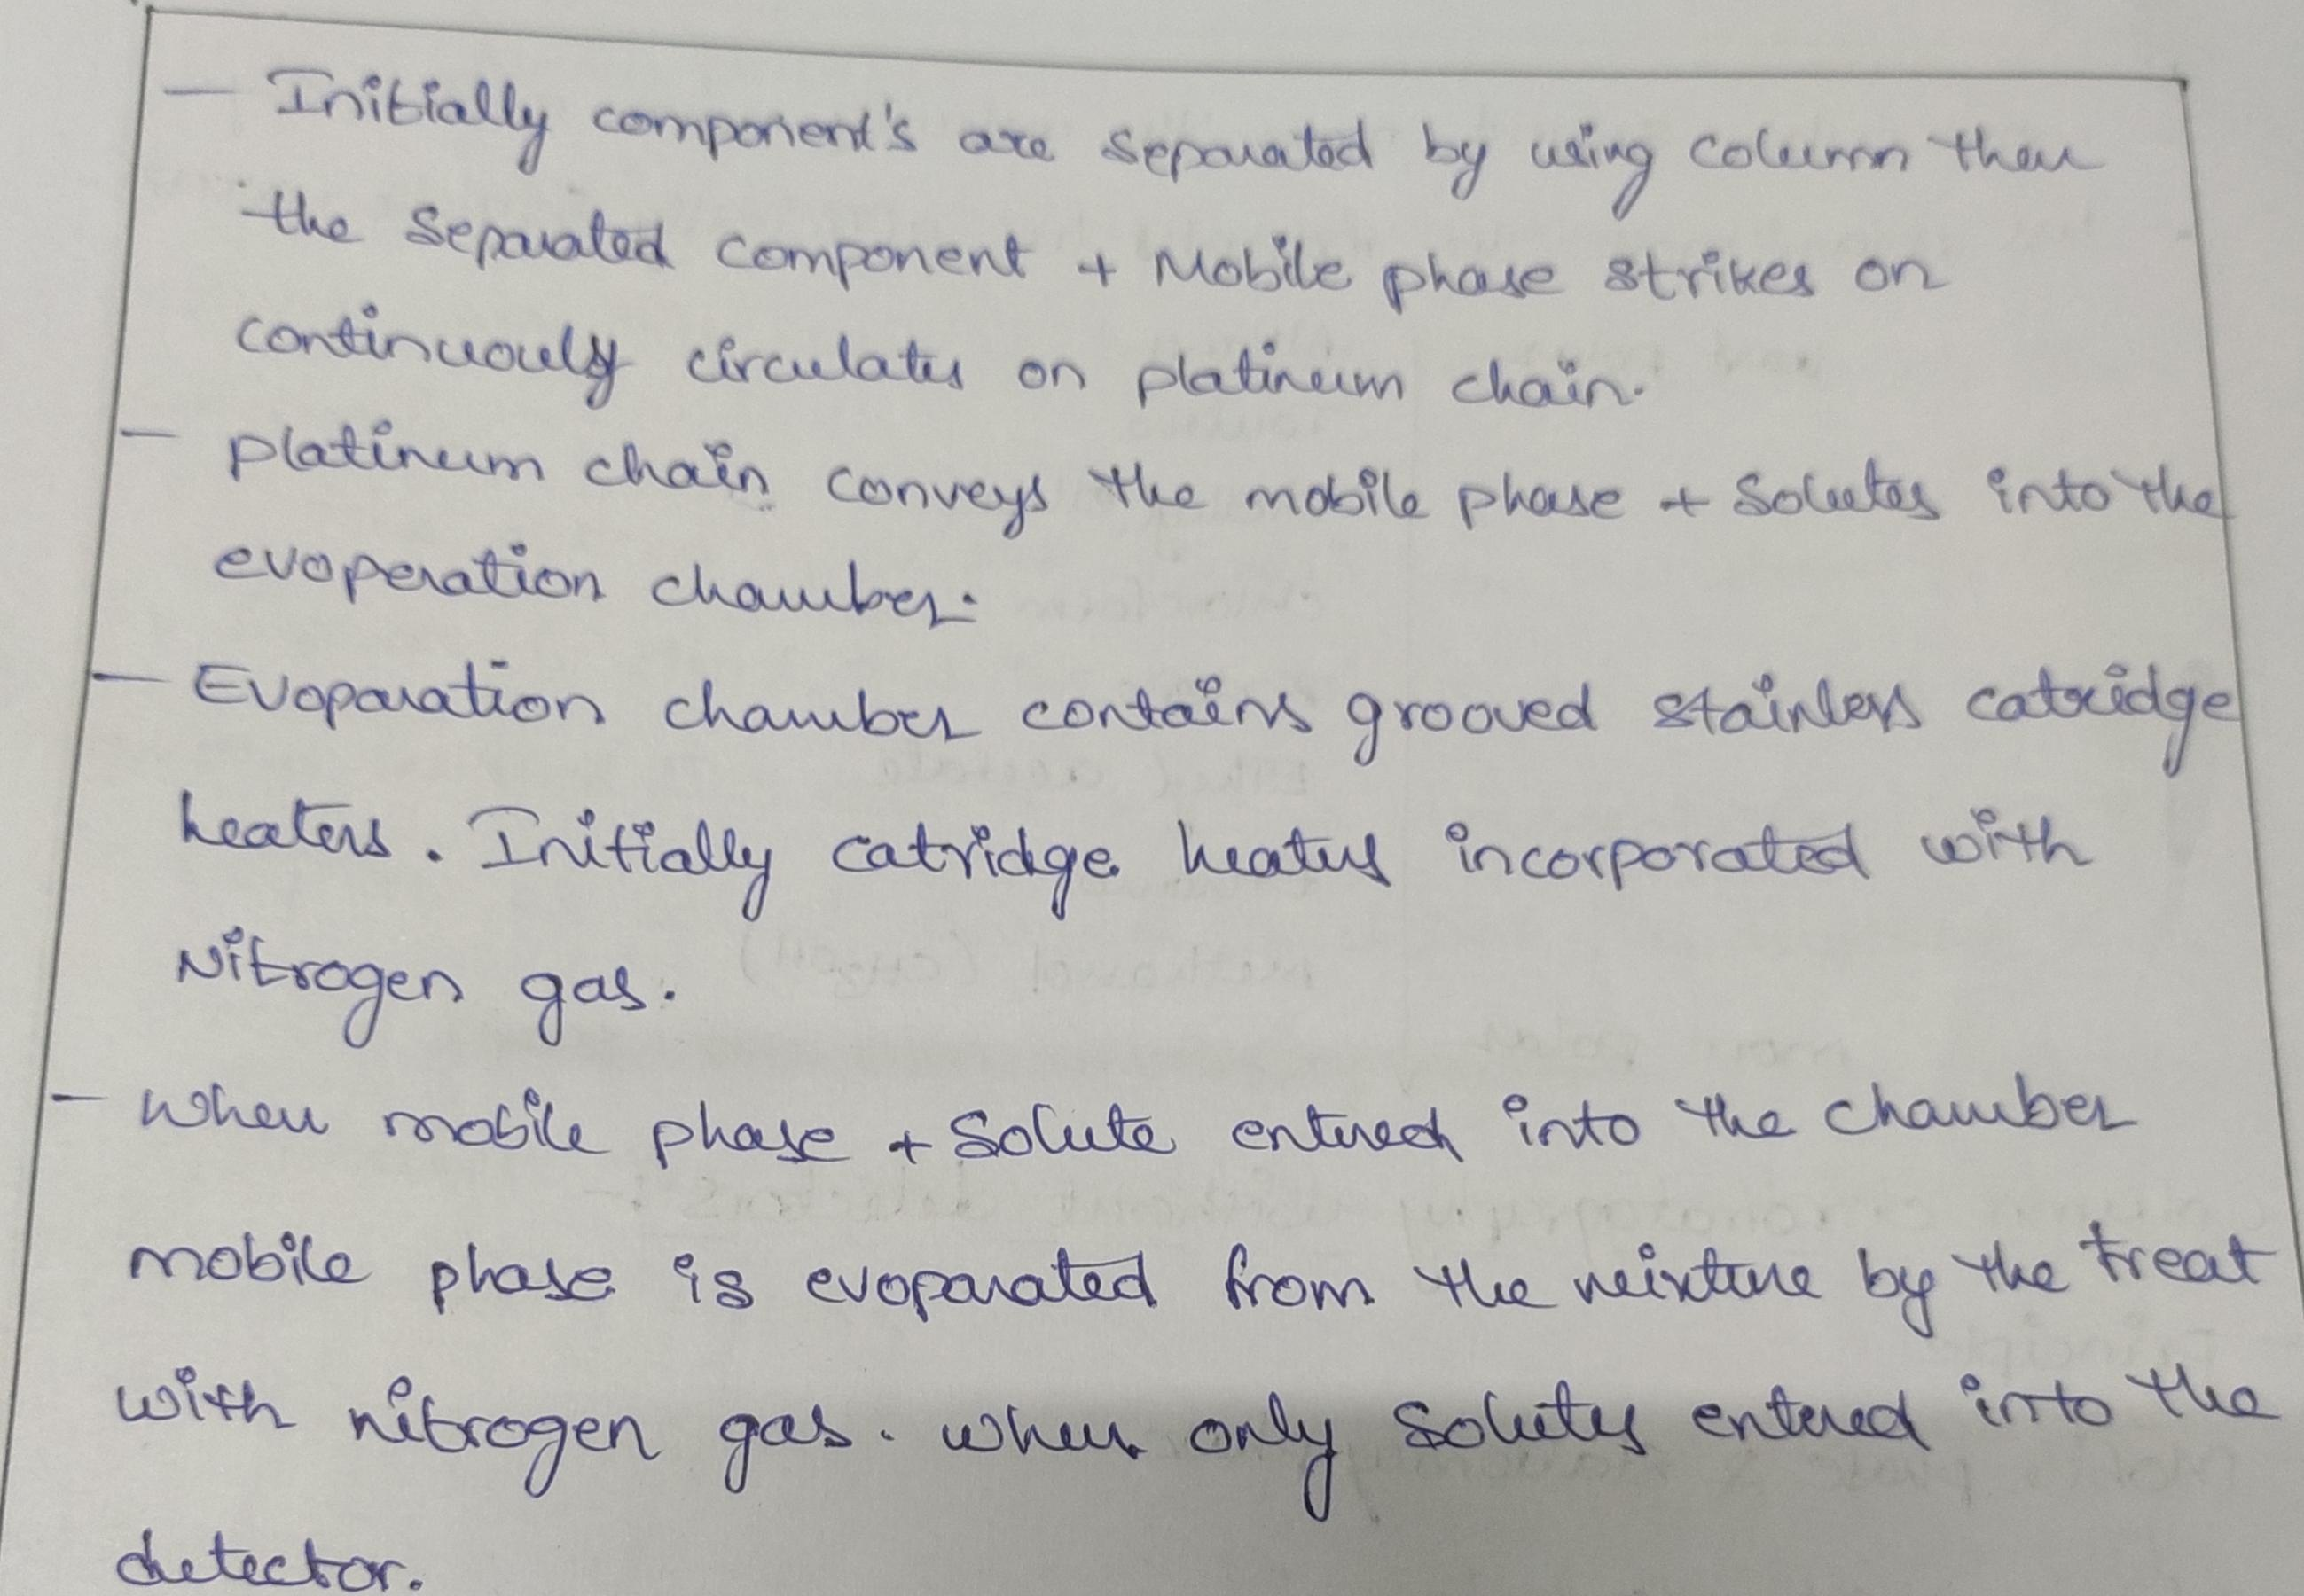 – Initially component's are separated by using column then
the separated component + Mobile phase strikes on
continuously circulates on platinum chain.
– platinum chain conveys the mobile phase + Solutes into the
evoperation chamber.
– Evoparation chamber contains grooved stainless catridge
heaters. Initially catridge heaters incorporated with
Nitrogen gas.
– When mobile phase + Solute entered into the chamber
mobile phase is evoparated from the mixture by the treat
with nitrogen gas. when only solutes entered into the
detector.